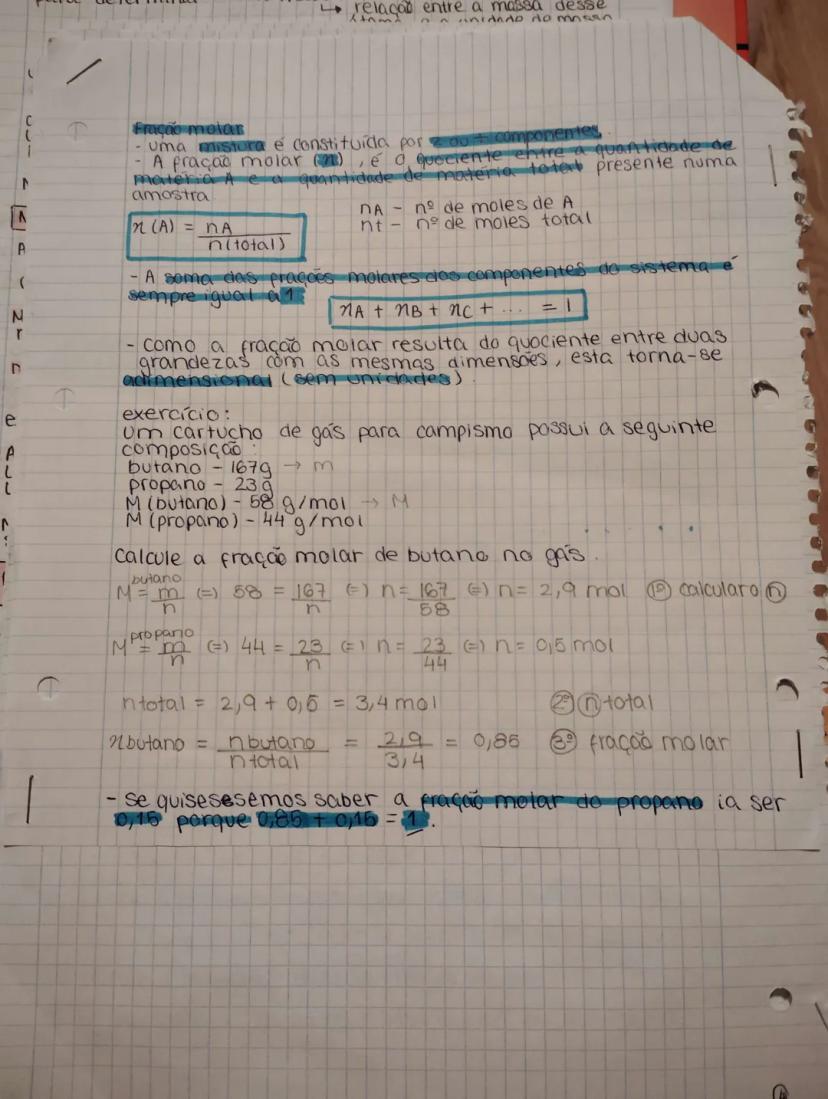 ↳ relação entre a massa desse
Fração molar
- uma mistura é constituída por 2 ou + componentes
- A fração molar (x), é o quociente entre a quantidade de
matéria A e a quantidade de matéria total presente numa
amostra
x(A) = nA / n(total)
nA - nº de moles de A
nt - nº de moles total
- A soma das frações molares dos componentes do sistema é
sempre igual a 1
xA + xB + xC + ... = 1
- como a fração molar resulta do quociente entre duas
grandezas com as mesmas dimensões, esta torna-se
adimensional (sem unidades).
exercício:
um cartucho de gás para campismo possui a seguinte
composição:
butano - 167g → m
propano - 23g
M (butano) - 58 g/mol → M
M (propano) - 44 g/mol
calcule a fração molar de butano no gás.
butano
M = m/n (=) 58 = 167/n (=) n = 167/58 (=) n = 2,9 mol 1º calcular o n
propano
M = m/n (=) 44 = 23/n (=) n = 23/44 (=) n = 0,5 mol
ntotal = 2,9 + 0,5 = 3,4 mol 2º n total
xbutano = nbutano/ntotal = 2,9/3,4 = 0,85 3º fração molar
- se quisesesemos saber a fração molar do propano ia ser
0,15 porque 0,85 + 0,15 = 1.